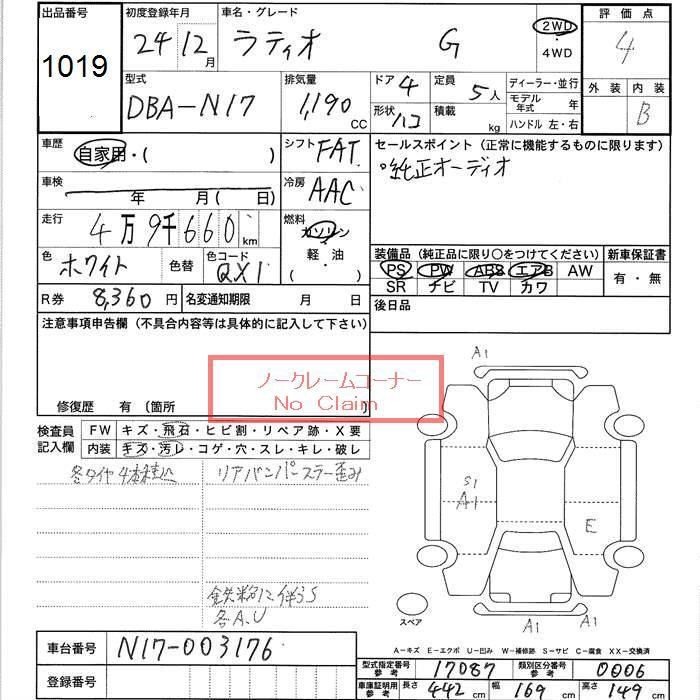 出品番号 初度登録年月 車名・グレード 評価点
1019 24 12月 ラティオ G 2WD・4WD 4
型式 排気量 ドア 4 定員 5人 ディーラー・並行 外装 内装
DBA-N17 1,190 CC 形状 ハコ 積載 kg モデル年式 年 B
ハンドル 左・右
車歴 自家用・( ) シフト FAT セールスポイント(正常に機能するものに限ります)
純正オーディオ
車検 年 月( 日) 冷房 AAC
走行 4万9千660km 燃料 ガソリン
軽・油
・( )
色 ホワイト 色替 色コード QX1
装備品(純正品に限り○をつけてください) 新車保証書
PS PW ABS エアB AW 有・無
SR ナビ TV カワ
R券 8,360円 名変通知期限 月 日 後日品
注意事項申告欄(不具合内容等は具体的に記入して下さい)
ノークレームコーナー
No Claim
修復歴 有 (箇所
検査員記入欄 FW キズ・飛石・ヒビ割・リペア跡・X要
内装 キズ・汚レ・コゲ・穴・スレ・キレ・破レ
冬タイヤ4本積込 リアバンパーステー歪み
鉄粉に伴うS
各A.U
A1
S1
A1
E
A1 A1
スペア
A-キズ E-エクボ U-凹み W-補修跡 S-サビ C-腐食 XX-交換済
車台番号 N17-003176
登録番号
型式指定番号参考 17087 類別区分番号参考 0006
車庫証明用参考 長さ 442cm 幅 169cm 高さ 149cm